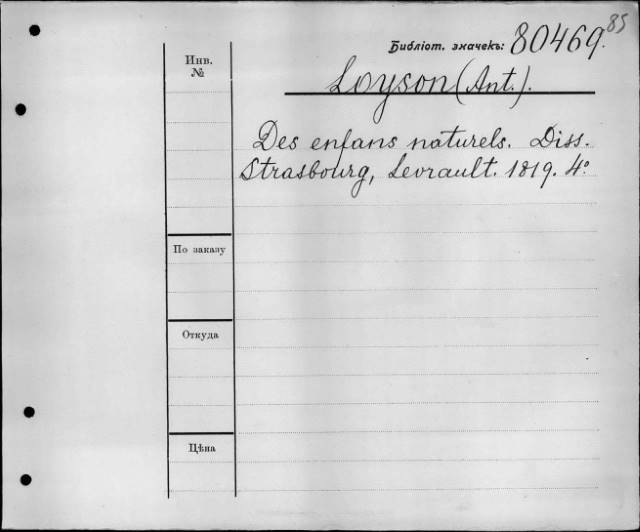 85
Библіот. значекъ: 80469.
Инв.
№
Loyson (Ant.).
Des enfans naturels. Diss.
Strasbourg, Levrault. 1819. 4°
По заказу
Откуда
Цѣна